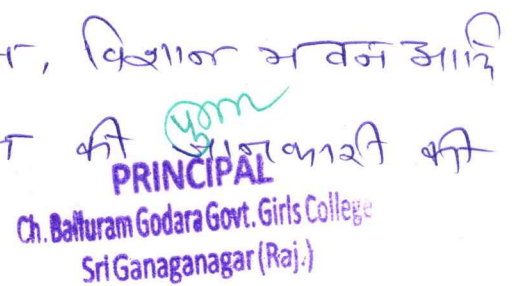 , विशाल भवन आदि
की जानकारी की
PRINCIPAL
Ch. Balluram Godara Govt. Girls College
Sri Ganaganagar (Raj.)